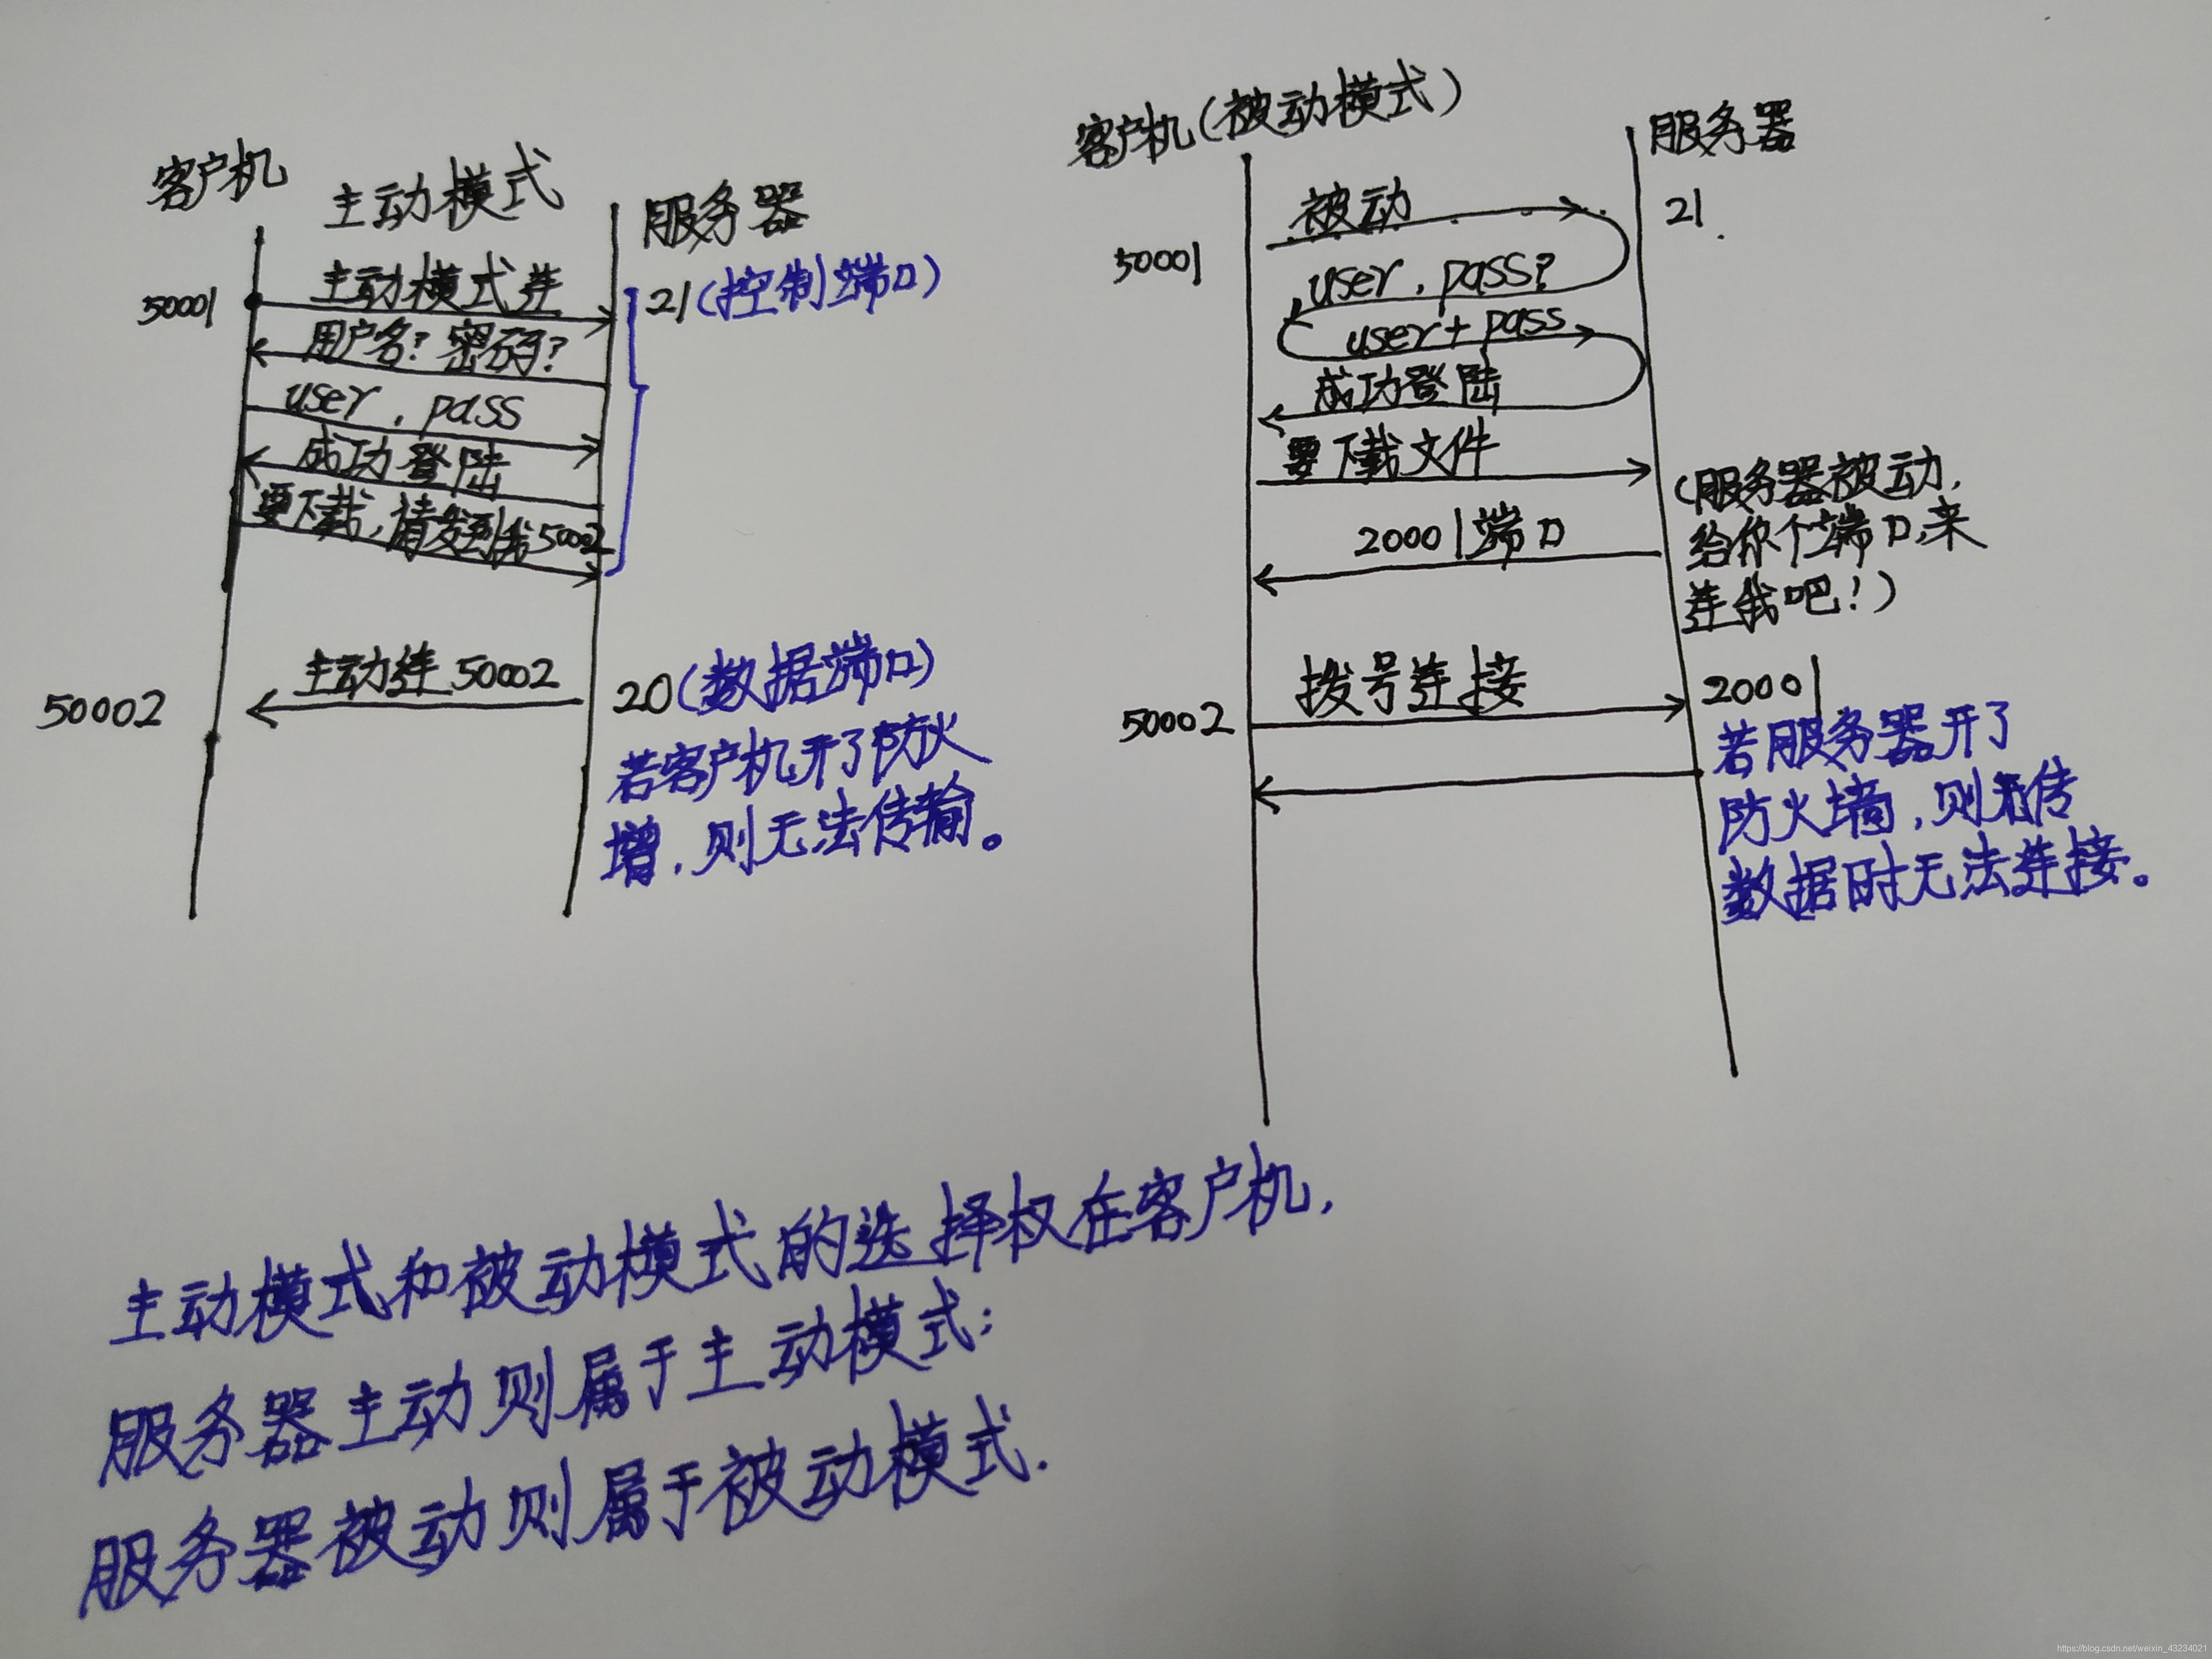 客户机
主动模式
服务器
50001
主动模式连
21(控制端口)
用户名?密码?
user, pass
成功登陆
要下载,请发到我50002
主动连50002
50002
20(数据端口)
若客户机开了防火
增,则无法传输。
客户机(被动模式)
服务器
被动
21
50001
user, pass?
user+pass
成功登陆
要下载文件
(服务器被动,
给你个端口,来
连我吧!)
20001端口
拨号连接
50002
20001
若服务器开了
防火墙,则无传
数据时无法连接。
主动模式和被动模式的选择权在客户机,
服务器主动则属于主动模式;
服务器被动则属于被动模式.
https://blog.csdn.net/weixin_43234021